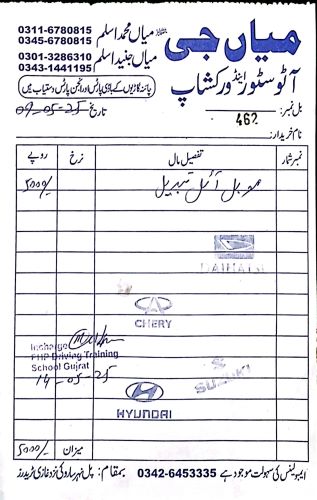 میاں جی
آٹو سٹور اینڈ ورکشاپ
میاں محمد اسلم 0311-6780815
0345-6780815
میاں جنید اسلم 0301-3286310
0343-1441195
چائنہ گاڑیوں کے باڈی پارٹس اور انجن پارٹس دستیاب ہیں
بل نمبر: 462
تاریخ 09-05-25
نام خریدار:
نمبر شمار تفصیل مال نرخ روپے
موبل آئل تبدیل 5000/-
DAIHATSU
CHERY
Incharge
PHP Driving Training
School Gujrat
14-05-25
SUZUKI
HYUNDAI
میزان 5000/-
ایمبولینس کی سہولت موجود ہے 0342-6453335 بمقام: پل نہر سارو کی نزد غازی ٹریڈرز